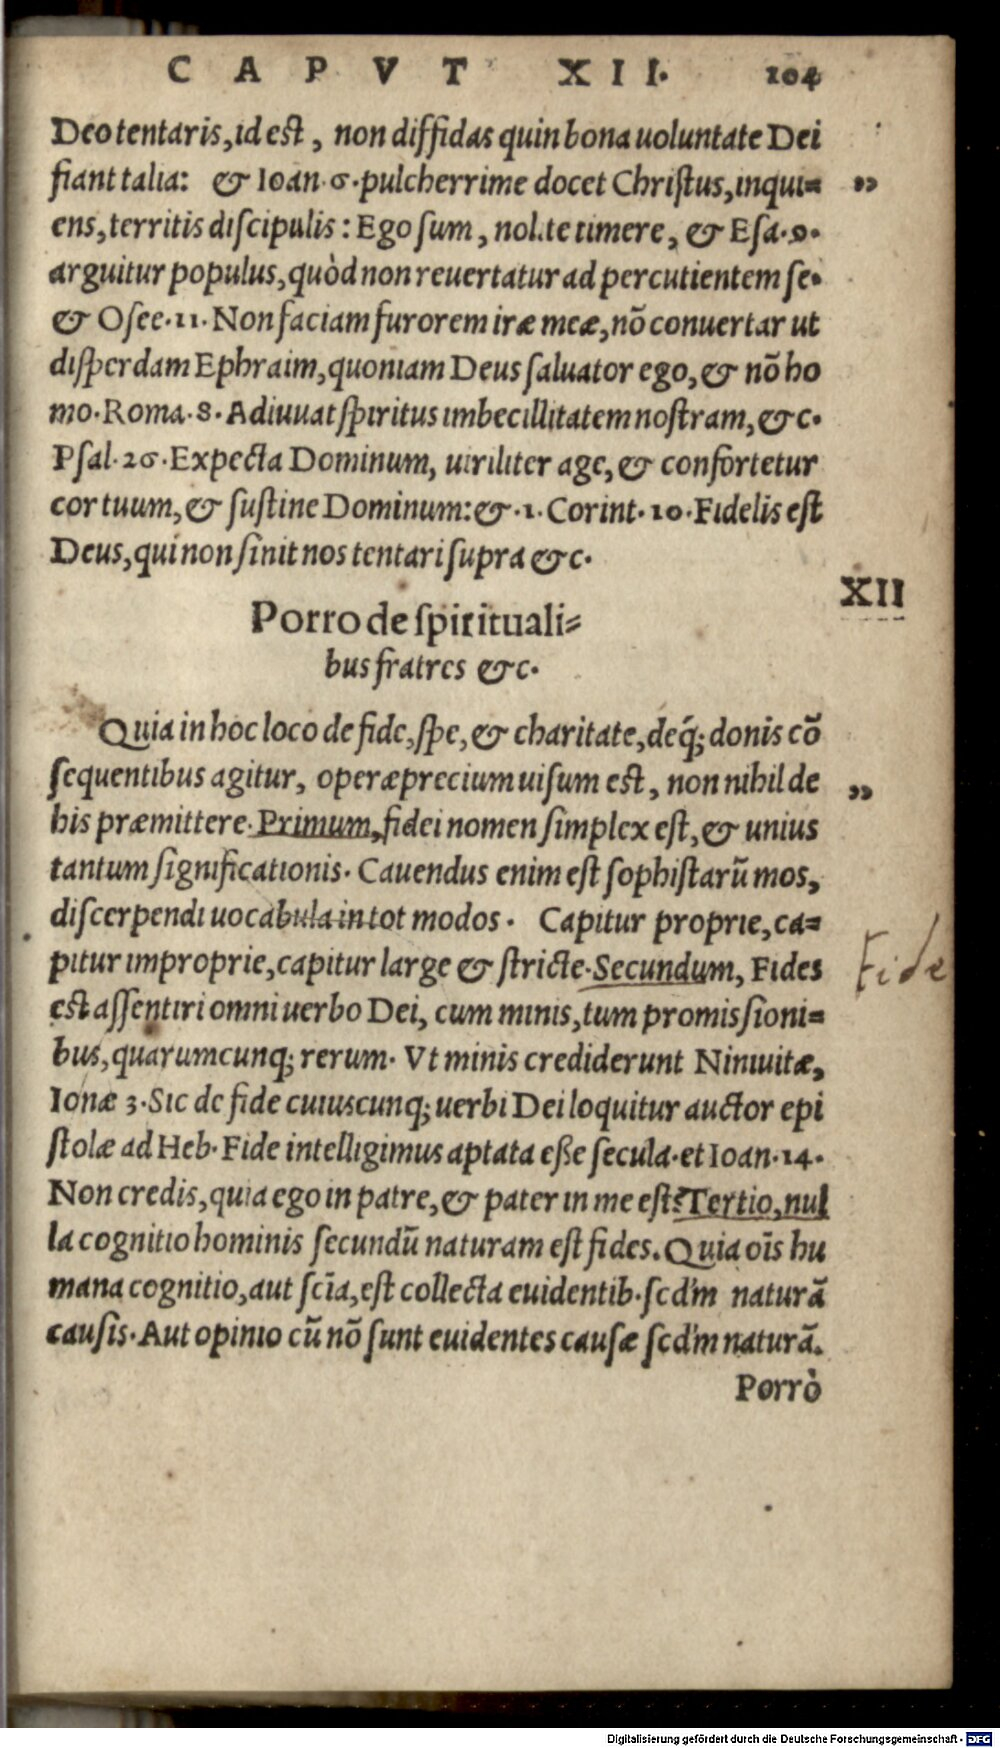 CAPVT XII. 104
Deo tentaris, id est, non diffidas quin bona uoluntate Dei
fiant talia: & Ioan. 6. pulcherrime docet Christus, inqui= „
ens, territis discipulis: Ego sum, nolite timere, & Esa. 9.
arguitur populus, quòd non reuertatur ad percutientem se.
& Osee. 11. Non faciam furorem iræ meæ, nõ conuertar ut
disperdam Ephraim, quoniam Deus saluator ego, & nõ ho
mo. Roma. 8. Adiuuat spiritus imbecillitatem nostram, &c.
Psal. 26. Expecta Dominum, uiriliter age, & confortetur
cor tuum, & sustine Dominum: & . 1. Corint. 10. Fidelis est
Deus, qui non sinit nos tentari supra &c.
XII
Porro de spirituali=
bus fratres &c.
Quia in hoc loco de fide, spe, & charitate, deq́; donis cõ
sequentibus agitur, operæprecium uisum est, non nihil de „
his præmittere. Primum, fidei nomen simplex est, & unius
tantum significationis. Cauendus enim est sophistarũ mos,
discerpendi uocabula in tot modos. Capitur proprie, ca=
pitur improprie, capitur large & stricte. Secundum, Fides
Fide
est assentiri omni uerbo Dei, cum minis, tum promissioni=
bus, quarumcunq; rerum. Vt minis crediderunt Niniuitæ,
Ionæ 3. Sic de fide cuiuscunq; uerbi Dei loquitur auctor epi
stolæ ad Heb. Fide intelligimus aptata eße secula. et Ioan. 14.
Non credis, quia ego in patre, & pater in me est? Tertio, nul
la cognitio hominis secundũ naturam est fides. Quia oĩs hu
mana cognitio, aut scĩa, est collecta euidentib. scd'm naturã
causis. Aut opinio cũ nõ sunt euidentes causæ scd'm naturã.
Porrò
Digitalisierung gefördert durch die Deutsche Forschungsgemeinschaft - DFG